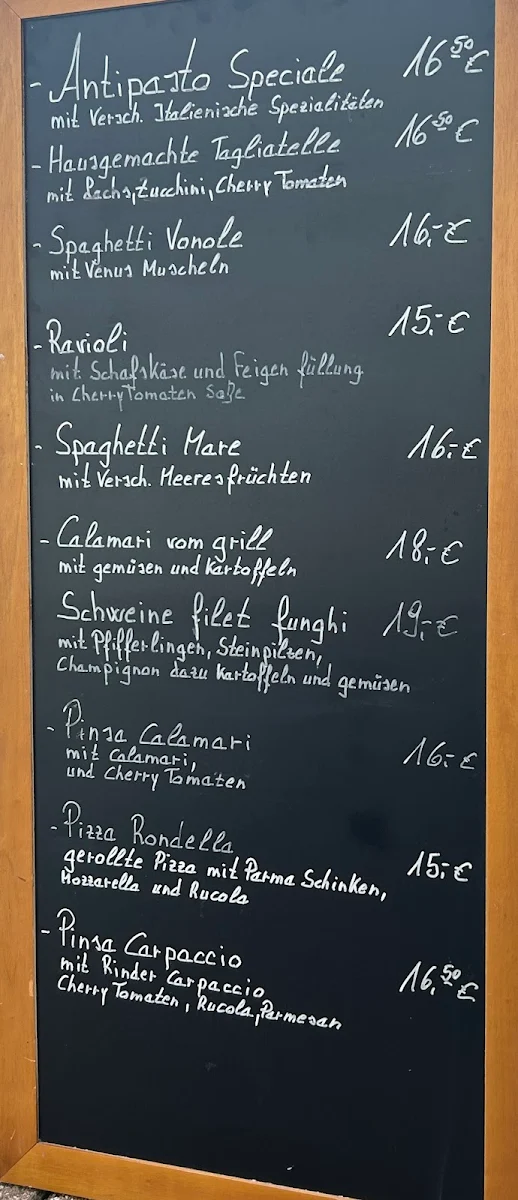 - Antipasto Speciale 16,50 €
mit Versch. Italienische Spezialitäten
- Hausgemachte Tagliatelle 16,50 €
mit Lachs, Zucchini, Cherry Tomaten
- Spaghetti Vonole 16,- €
mit Venus Muscheln
- Ravioli 15,- €
mit Schafskäse und Feigen füllung
in Cherry Tomaten Soße
- Spaghetti Mare 16,- €
mit Versch. Meeresfrüchten
- Calamari vom grill 18,- €
mit gemüsen und Kartoffeln
Schweine filet funghi 19,- €
mit Pfifferlingen, Steinpilzen,
Champignon dazu Kartoffeln und gemüsen
- Pinsa Calamari 16,- €
mit Calamari,
und Cherry Tomaten
- Pizza Rondella 15,- €
gerollte Pizza mit Parma Schinken,
Mozzarella und Rucola
- Pinsa Carpaccio 16,50 €
mit Rinder Carpaccio
Cherry Tomaten, Rucola, Parmesan